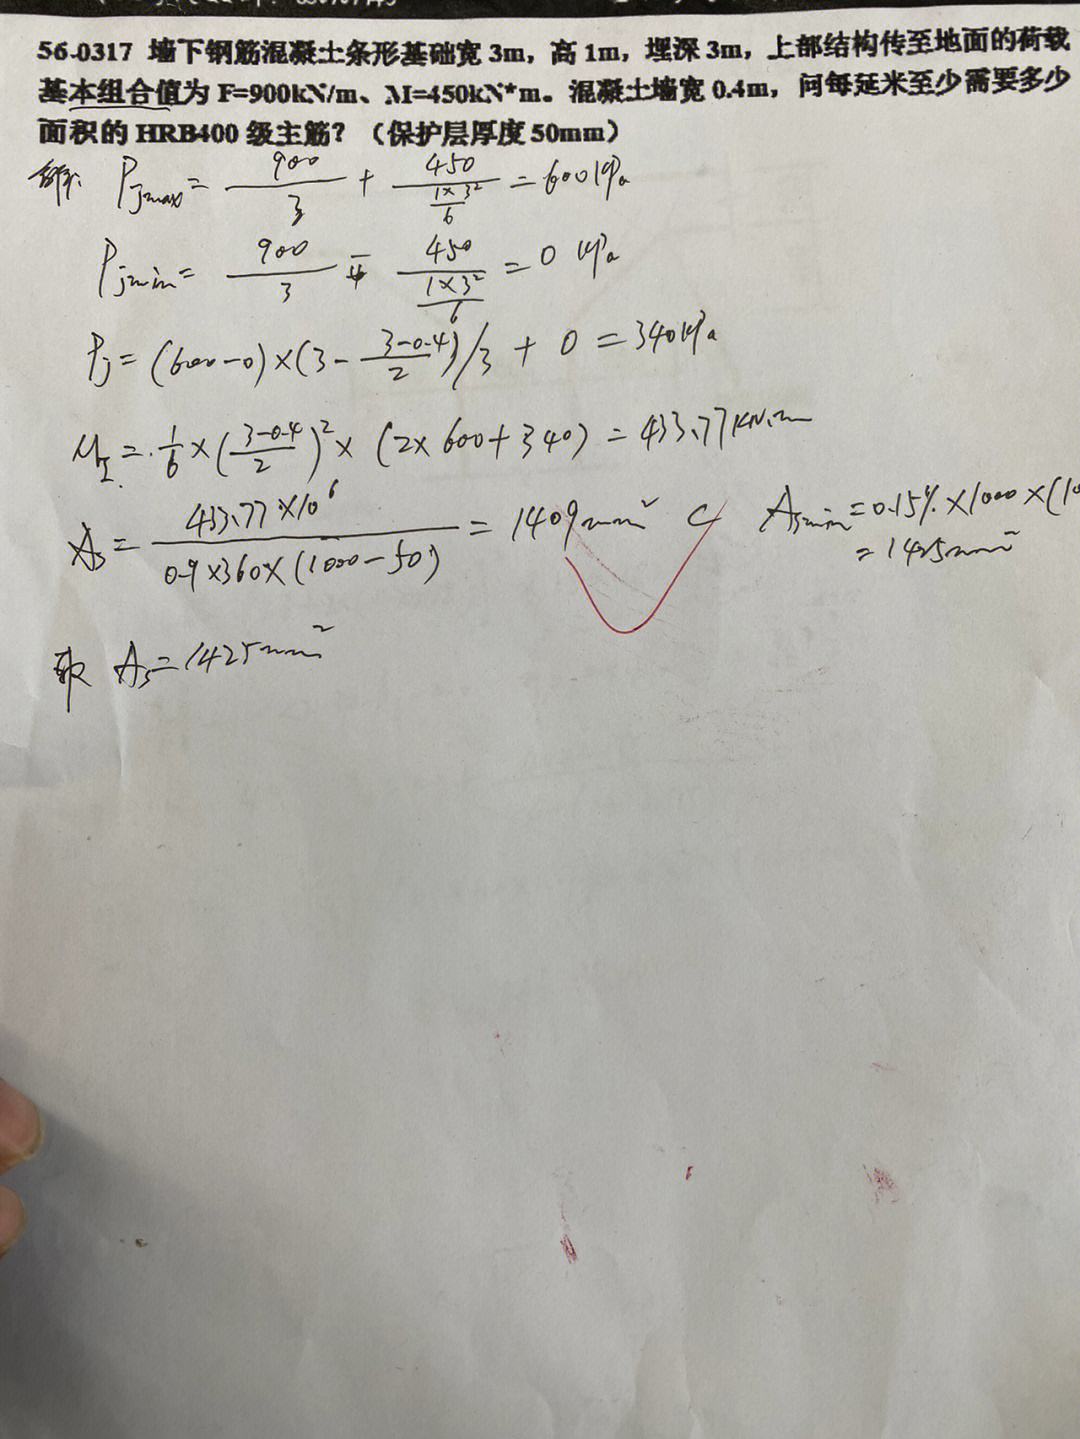 56-0317 墙下钢筋混凝土条形基础宽 3m，高 1m，埋深 3m，上部结构传至地面的荷载
基本组合值为 F=900kN/m、M=450kN*m。混凝土墙宽 0.4m，问每延米至少需要多少
面积的 HRB400 级主筋？（保护层厚度 50mm）
解: Pjmax = 900/3 + 450/(1×3²/6) = 600kPa
Pjmin = 900/3 - 450/(1×3²/6) = 0 kPa
Pj = (600-0)×(3-(3-0.4)/2)/3 + 0 = 340kPa
MI = 1/6×((3-0.4)/2)²×(2×600+340) = 433.77kN·m
As = 433.77×10⁶/(0.9×360×(1000-50)) = 1409mm² < Asmin=0.15%×1000×(10
=1425mm²
取 As=1425mm²